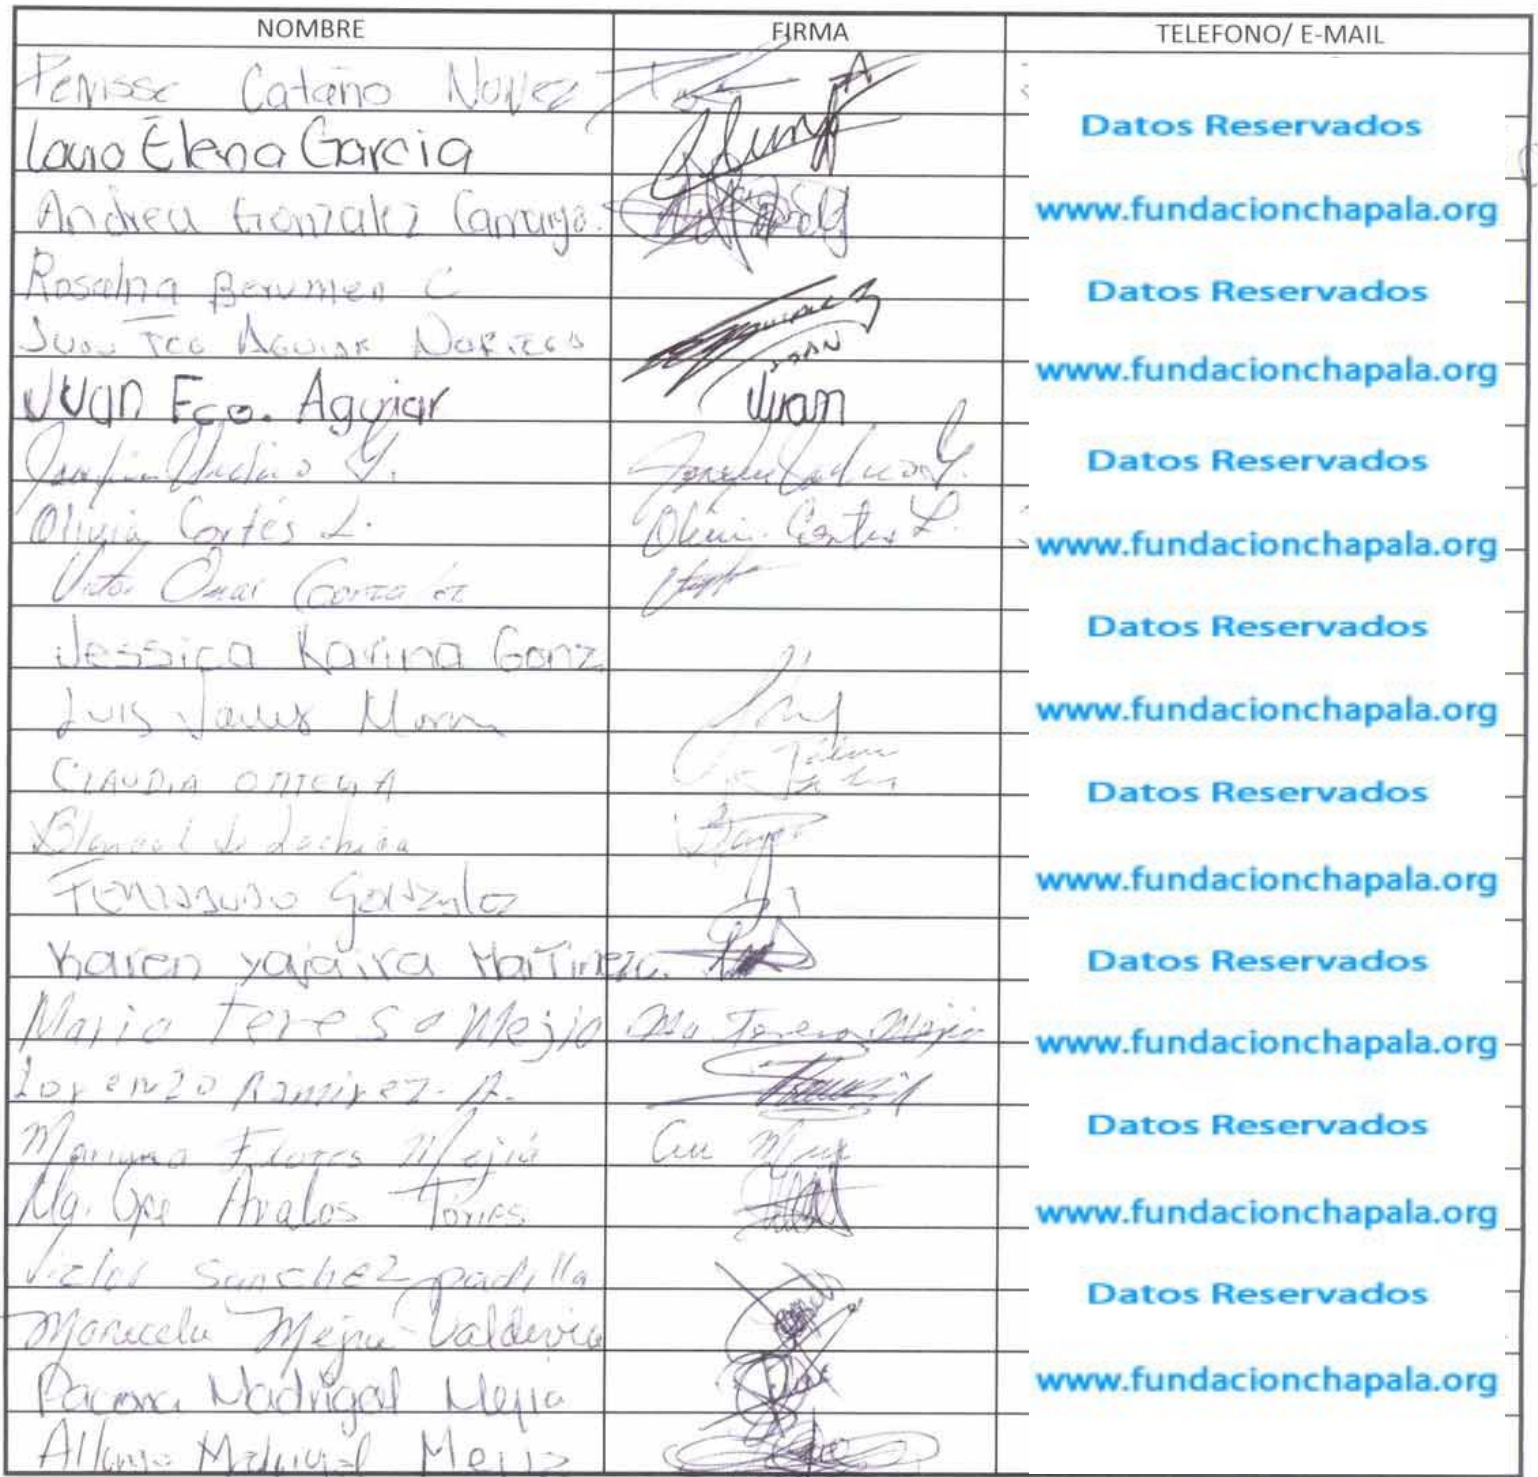 NOMBRE FIRMA TELEFONO/ E-MAIL
Cataño Nuñez
Datos Reservados
Elena Garcia
Andrea Gonzalez Camarga.
www.fundacionchapala.org
Rosalina Berumen C
Datos Reservados
Juan Fco Aguiar Noriega
www.fundacionchapala.org
Juan Fco. Aguiar Juan
Datos Reservados
Olivia Cortés L. Olivia Cortes L.
www.fundacionchapala.org
Victor Omar Gonzalez
Datos Reservados
Jessica Karina Gonz
Luis Javier Moran
www.fundacionchapala.org
CLAUDIA ORTEGA
Datos Reservados
Fernando Gonzalez
www.fundacionchapala.org
Karen Yajaira Martinez
Datos Reservados
Maria Teresa Mejia Ma Teresa Mejia
www.fundacionchapala.org
Lorenzo Ramirez. A.
Datos Reservados
Mariana Flores Mejia
Ma. Gpe Avalos Torres
www.fundacionchapala.org
Victor Sanchez padilla
Datos Reservados
Maricela Mejia Valdivia
Madrigal Mejia
www.fundacionchapala.org
Alfonso Madrigal Mejia